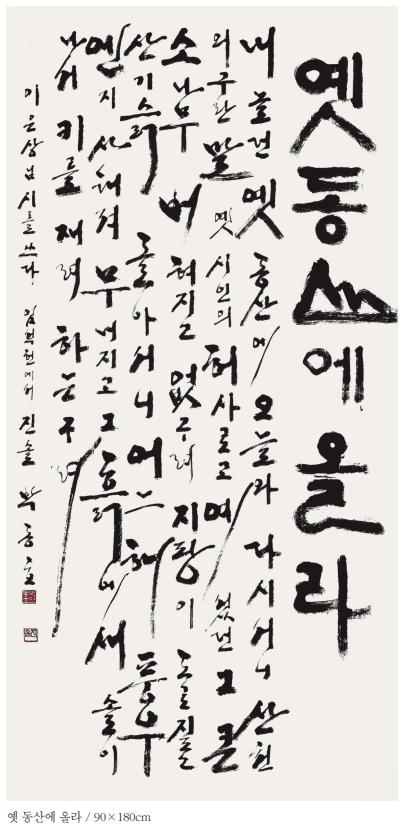 옛동산에 올라
내 놀던 옛 동산에 오늘 와 다시 서니 산천
의구란 말 옛 시인의 허사로고 예 섰던 그 큰
소나무 버혀지고 없구려 지팡이 도로 짚고
산기슭 돌아서니 어느 해 풍우
엔지 사태져 무너지고 그 흙에 새 솔이
나서 키를 재려 하는구려
이은상님 시를 쓰다 진솔
옛 동산에 올라 / 90×180cm